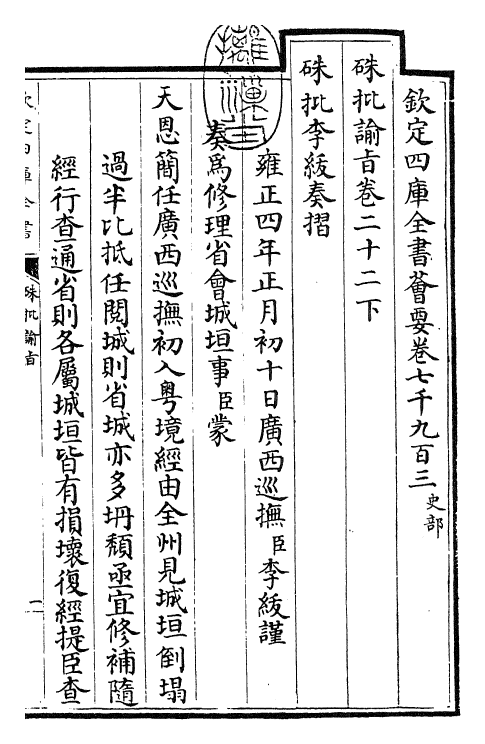 欽定四庫全書薈要卷七千九百三 史部
硃批諭旨卷二十二下
硃批李紱奏摺
雍正四年正月初十日廣西巡撫臣李紱謹
奏為修理省會城垣事臣蒙
天恩簡任廣西巡撫初入粵境經由全州見城垣倒塌
過半比抵任閱城則省城亦多坍頹亟宜修補隨
經行查通省則各屬城垣皆有損壞復經提臣查
欽定四庫全書
硃批諭旨